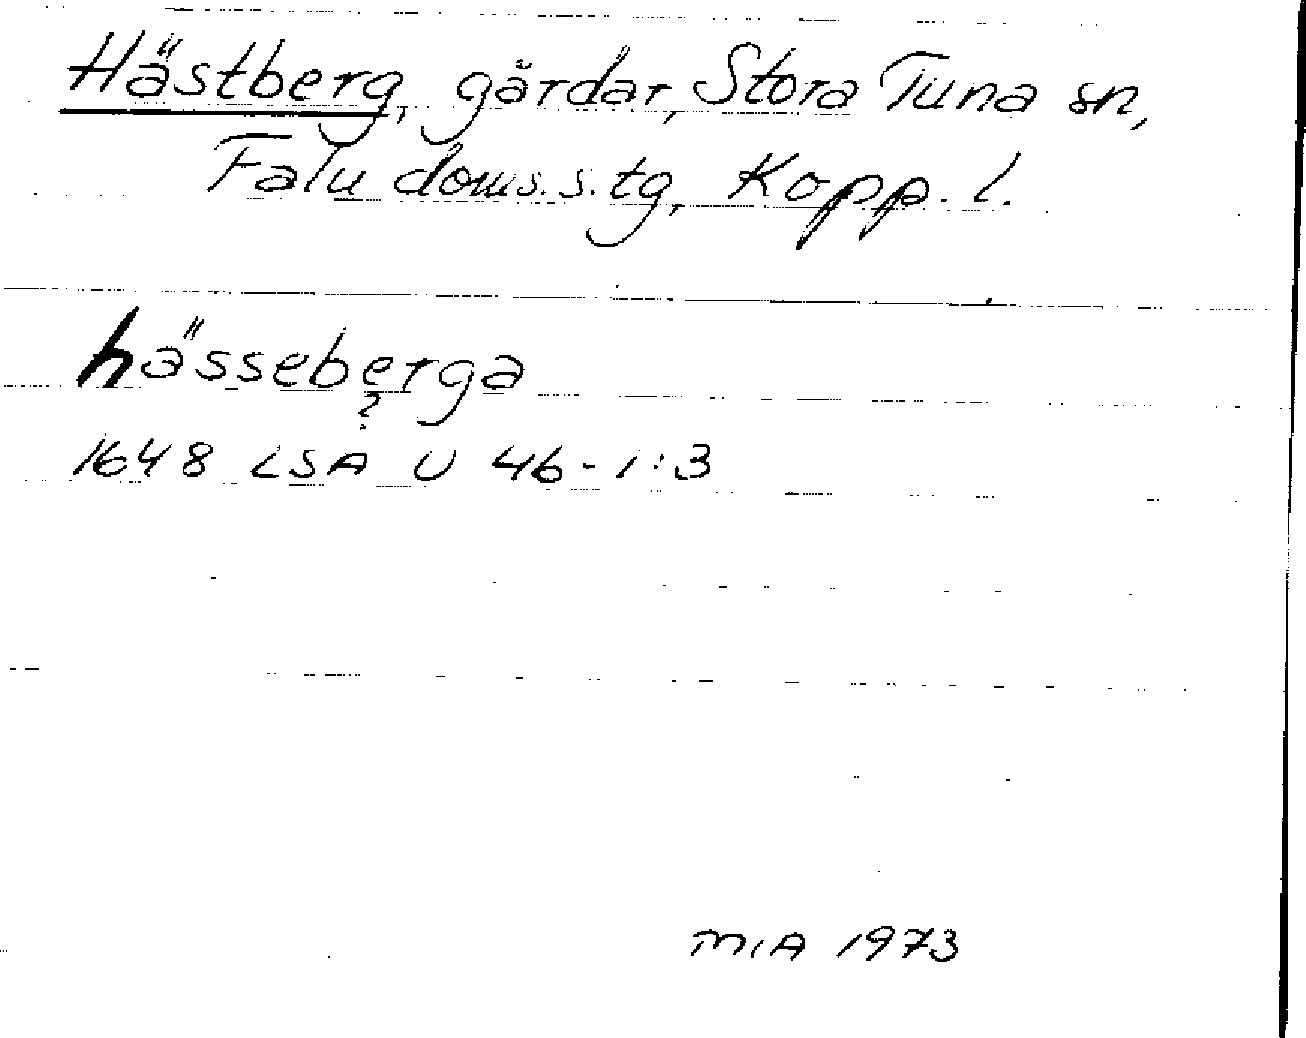 Hästberg, gårdar, Stora Tuna sn,
Falu doms.s.tg, Kopp. l.
hässeberga
?
1648 LSA U 46-1:3
MIA 1973